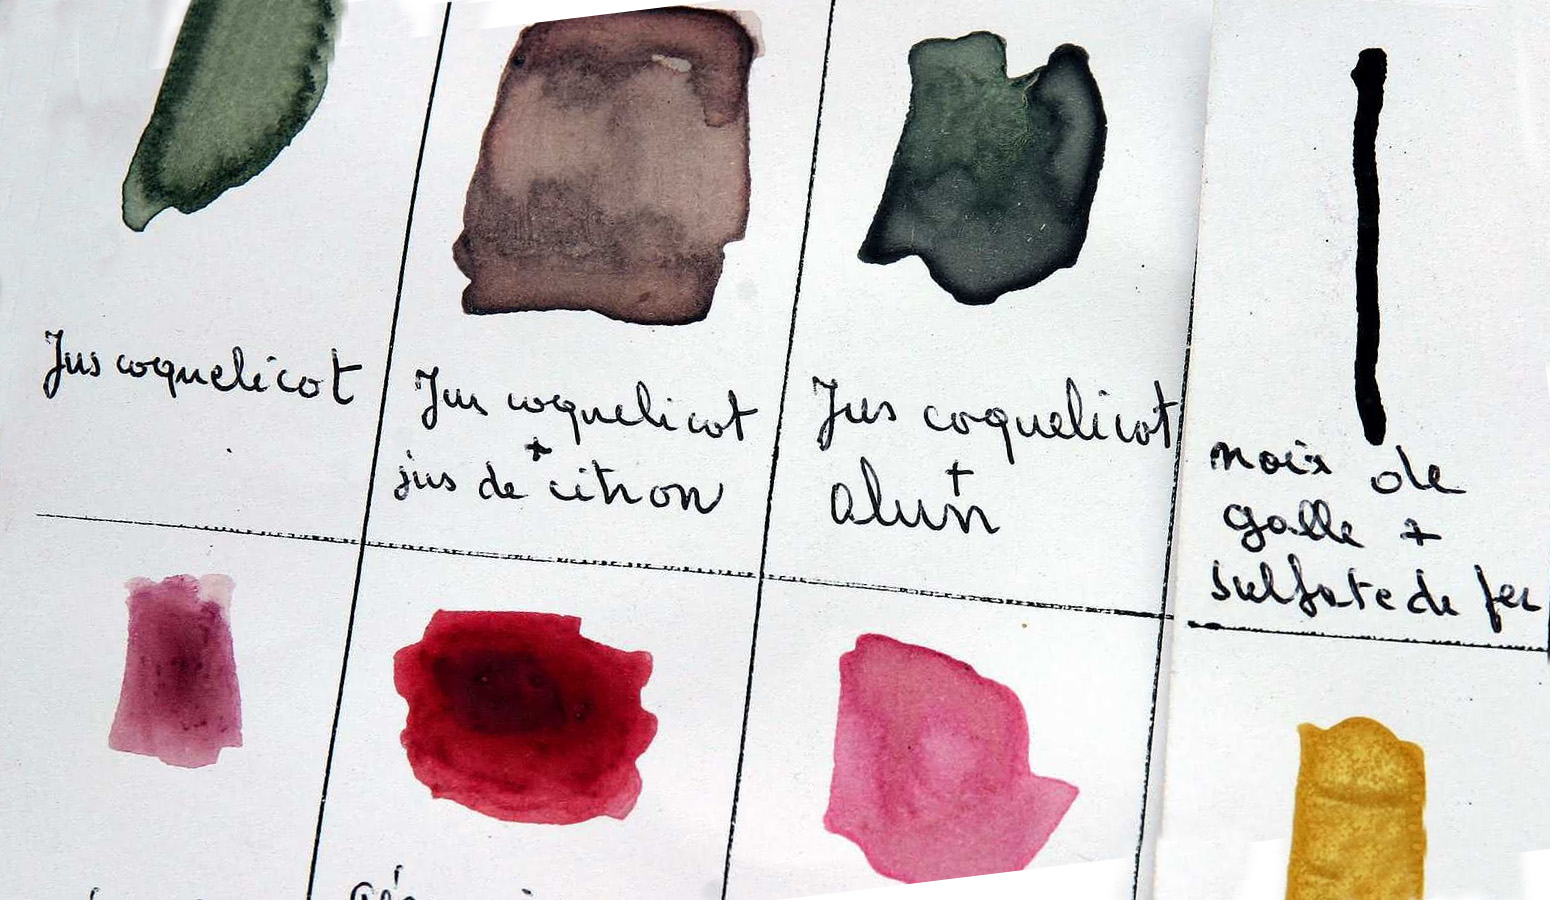 Jus coquelicot
Jus coquelicot
+
jus de citron
Jus coquelicot
+
alun
noix de
galle +
sulfate de fer